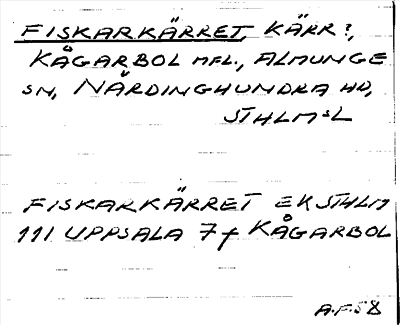 FISKARKÄRRET, KÄRR?,
KÅGARBOL MFL., ALMUNGE
SN, NÄRDINGHUNDRA HD,
STHLMSL
FISKARKÄRRET EK STHLM
111 UPPSALA 7 f KÅGARBOL
A.F.58